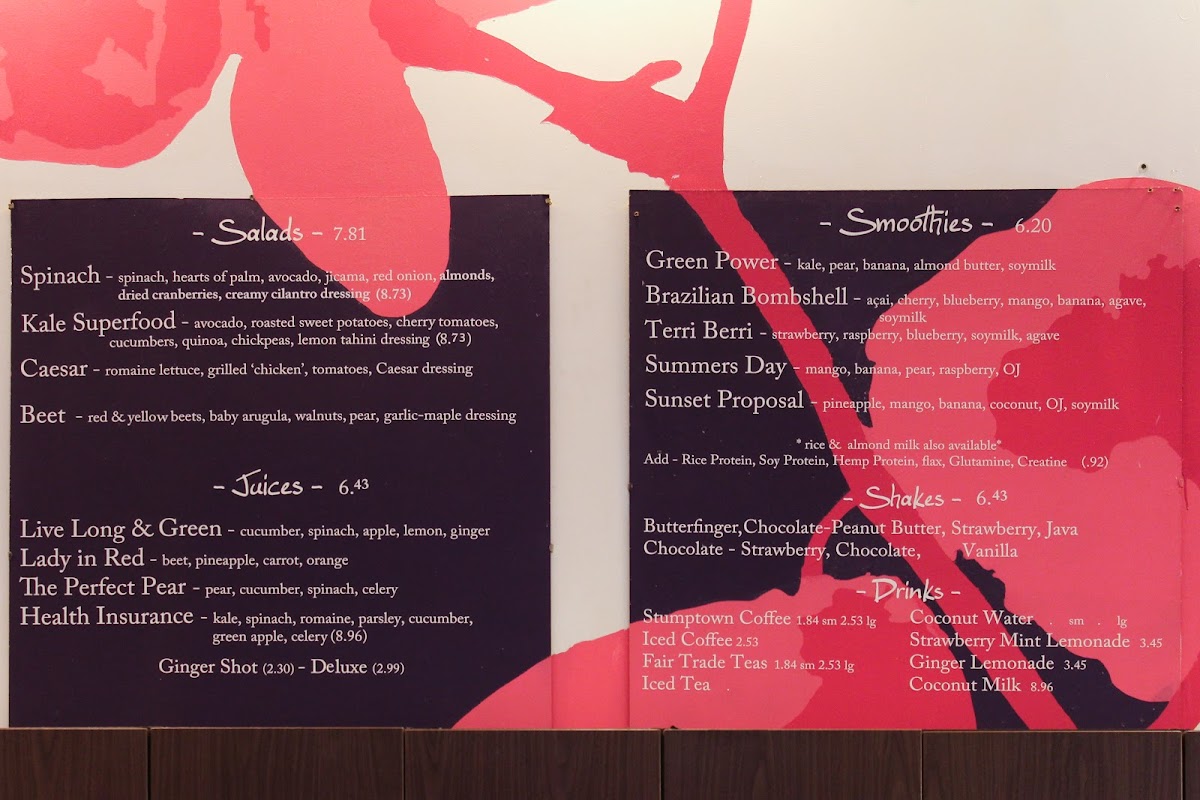 - Salads - 7.81
Spinach - spinach, hearts of palm, avocado, jicama, red onion, almonds,
dried cranberries, creamy cilantro dressing (8.73)
Kale Superfood - avocado, roasted sweet potatoes, cherry tomatoes,
cucumbers, quinoa, chickpeas, lemon tahini dressing (8.73)
Caesar - romaine lettuce, grilled ‘chicken’, tomatoes, Caesar dressing
Beet - red & yellow beets, baby arugula, walnuts, pear, garlic-maple dressing
- Juices - 6.43
Live Long & Green - cucumber, spinach, apple, lemon, ginger
Lady in Red - beet, pineapple, carrot, orange
The Perfect Pear - pear, cucumber, spinach, celery
Health Insurance - kale, spinach, romaine, parsley, cucumber,
green apple, celery (8.96)
Ginger Shot (2.30) - Deluxe (2.99)
- Smoothies - 6.20
Green Power - kale, pear, banana, almond butter, soymilk
Brazilian Bombshell - açai, cherry, blueberry, mango, banana, agave,
soymilk
Terri Berri - strawberry, raspberry, blueberry, soymilk, agave
Summers Day - mango, banana, pear, raspberry, OJ
Sunset Proposal - pineapple, mango, banana, coconut, OJ, soymilk
* rice & almond milk also available*
Add - Rice Protein, Soy Protein, Hemp Protein, flax, Glutamine, Creatine (.92)
- Shakes - 6.43
Butterfinger, Chocolate-Peanut Butter, Strawberry, Java
Chocolate - Strawberry, Chocolate, Vanilla
- Drinks -
Stumptown Coffee 1.84 sm 2.53 lg
Iced Coffee 2.53
Fair Trade Teas 1.84 sm 2.53 lg
Iced Tea .
Coconut Water . sm . lg
Strawberry Mint Lemonade 3.45
Ginger Lemonade 3.45
Coconut Milk 8.96